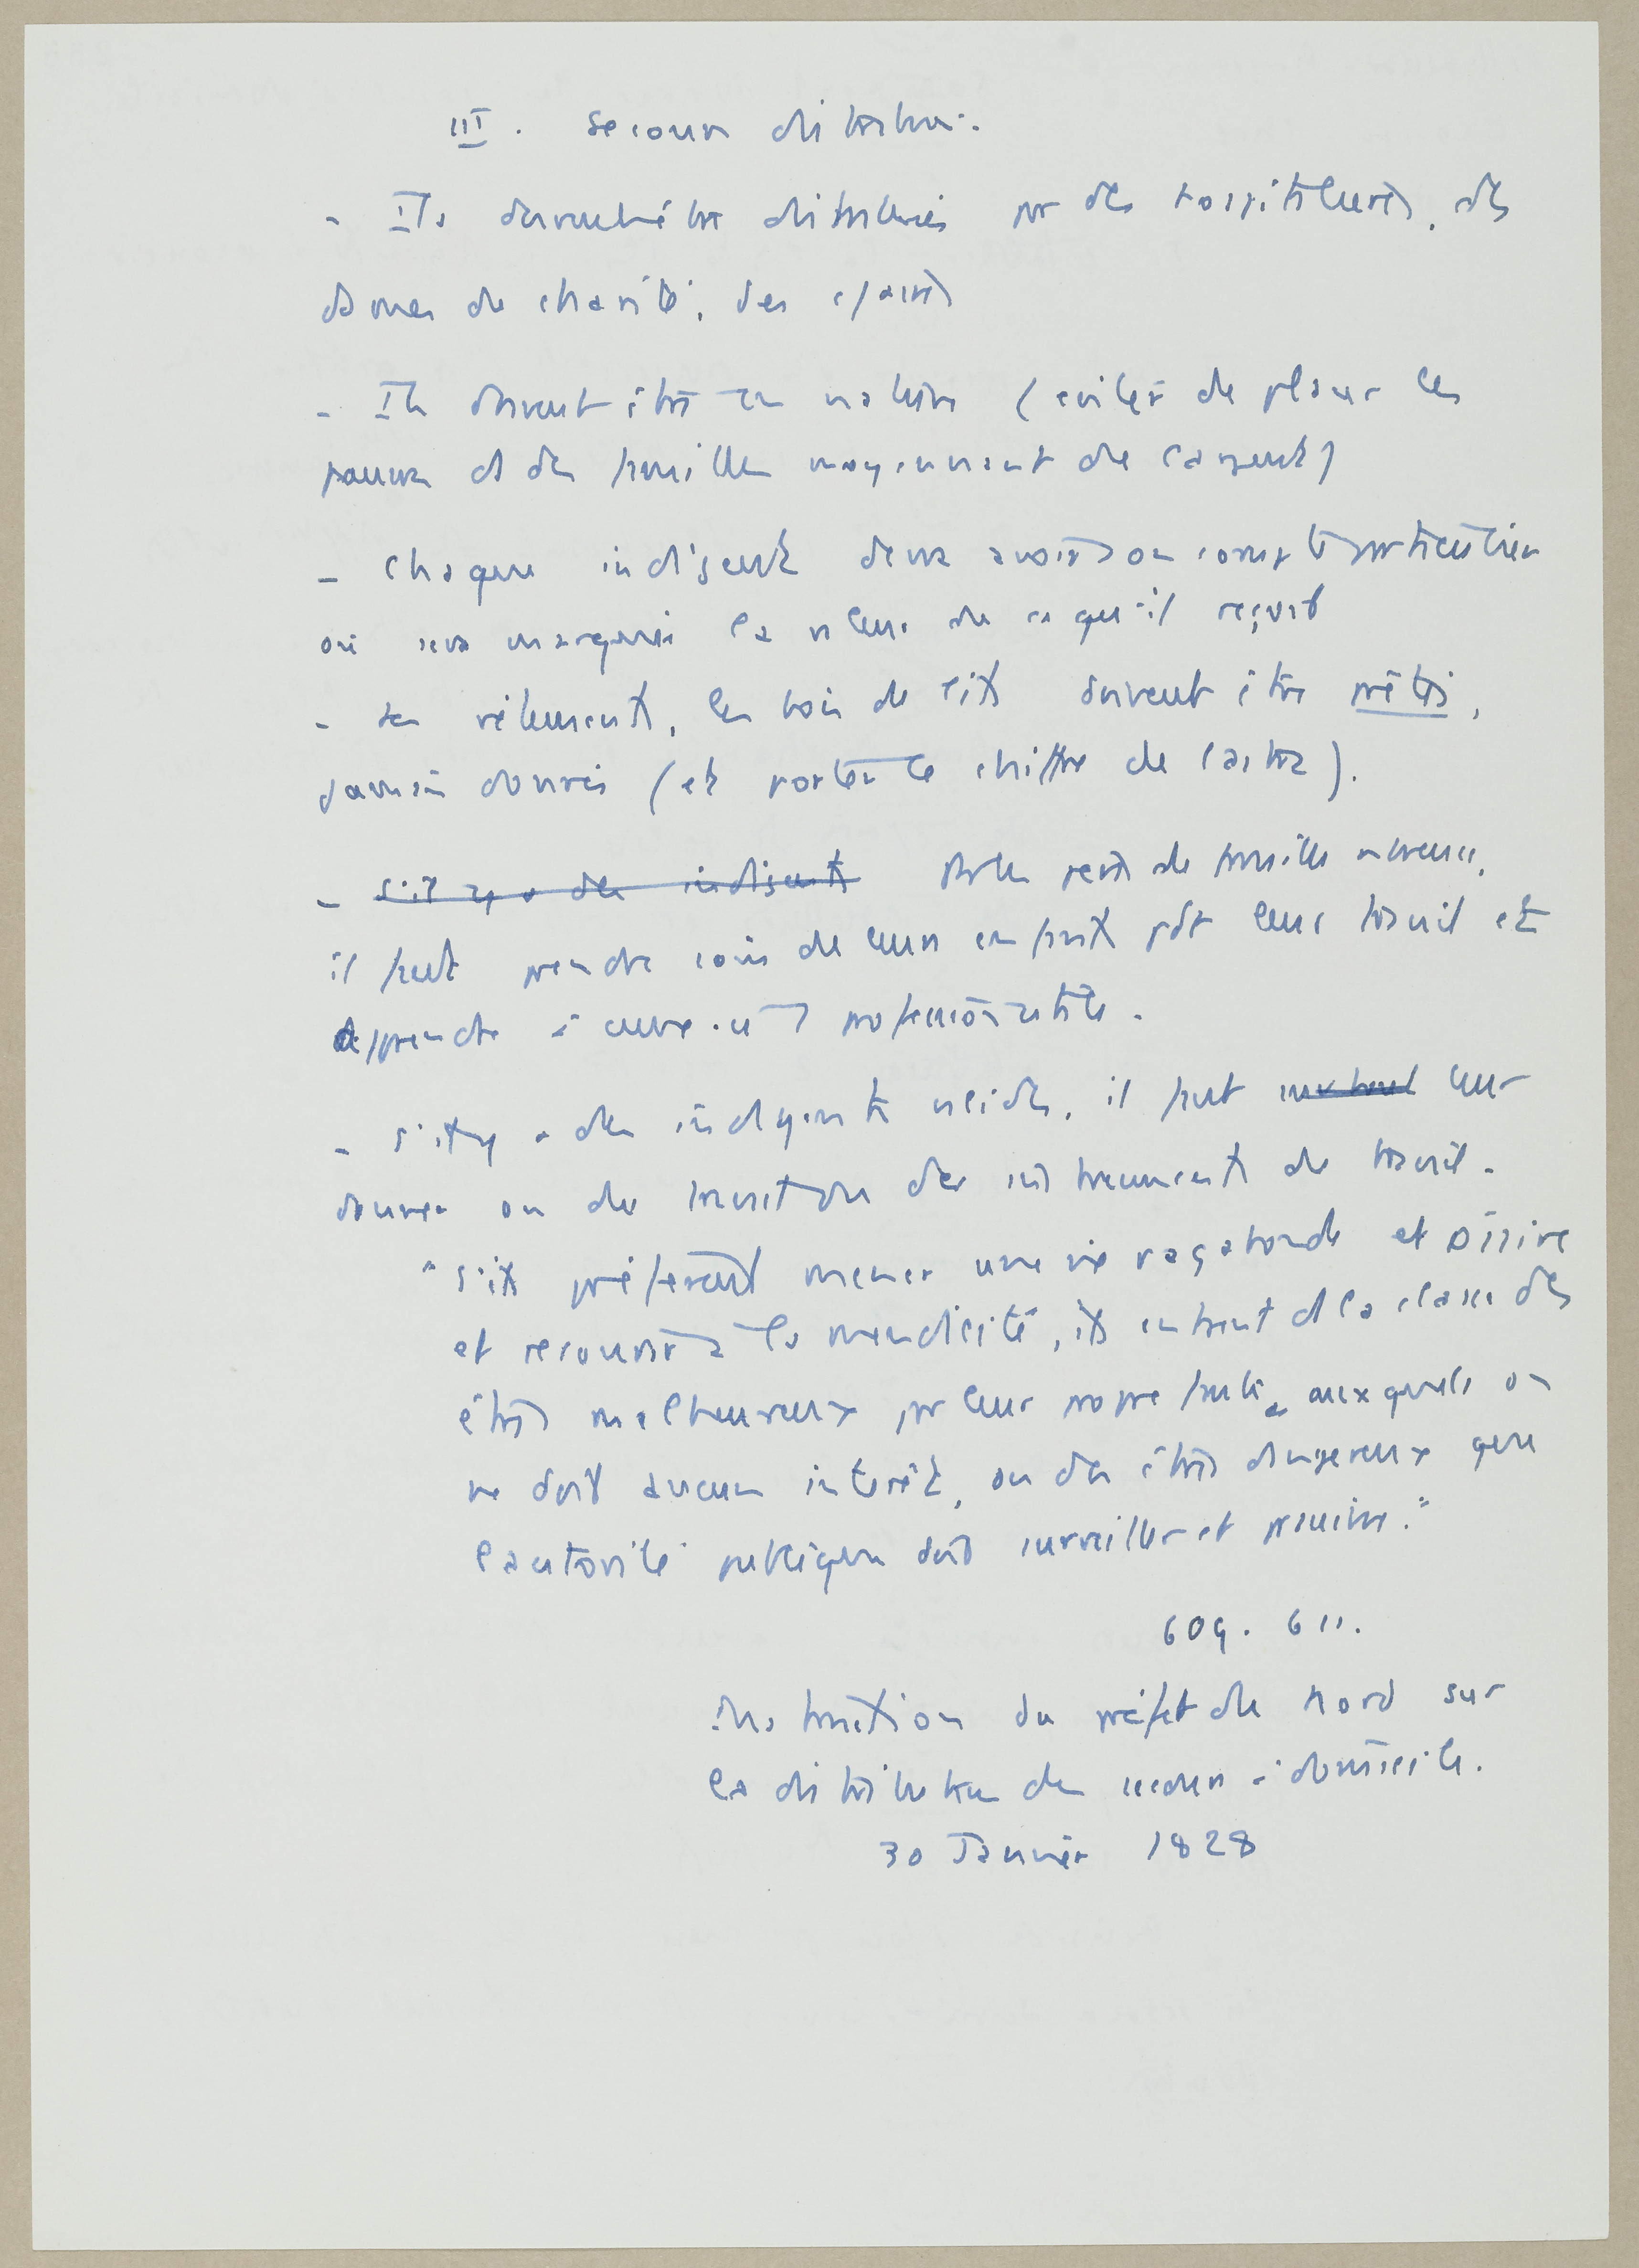 III. Secours distribués.
- Ils doivent être distribués par des hospitalières, des
dames de charité, des
- Ils doivent être en nature (éviter de placer les
pauvres ds des familles moyennant de l'argent)
- Chaque indigent devra avoir son compte particulier
où sera marquée la valeur de ce qu'il reçoit
- Les vêtements, les bois de lits doivent être prêtés,
jamais donnés (et porter le chiffre de
- S'il y a des indigents pères de famille
il faut prendre soin de leurs enfants pdt leur travail et
apprendre à ceux-ci 1 profession utile.
- S'il y a des indigents valides, il faut leur
donner ou du travail ou des instruments de travail.
"S'ils préfèrent mener une vie vagabonde et oisive
et recourir à la mendicité, ils entrent ds la classe des
êtres malheureux par leur propre faute auxquels on
ne doit aucun intérêt, ou des êtres dangereux que
l'autorité publique doit surveiller et punir."
609. 611.
Instruction du préfet du Nord sur
la distribution des secours à domicile.
30 Janvier 1828